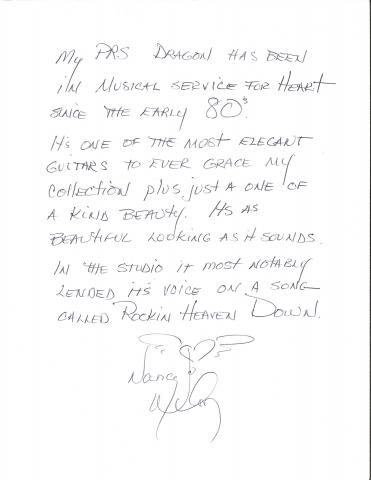 My PRS DRAGON HAS BEEN
iN MUSICAL SERVICE FOR HEART
SINCE THE EARLY 80's.
It's ONE OF THE MOST ELEGANT
GUITARS TO EVER GRACE MY
COLLECTION plus just A ONE OF
A KIND BEAUTY. It's AS
BEAUTIFUL LOOKING AS it SOUNDS.
IN THE STUDIO iT MOST NOTABLY
LENDED it's VOICE ON A SONG
CALLED ROCKIN HEAVEN DOWN.
Nancy
Wilson